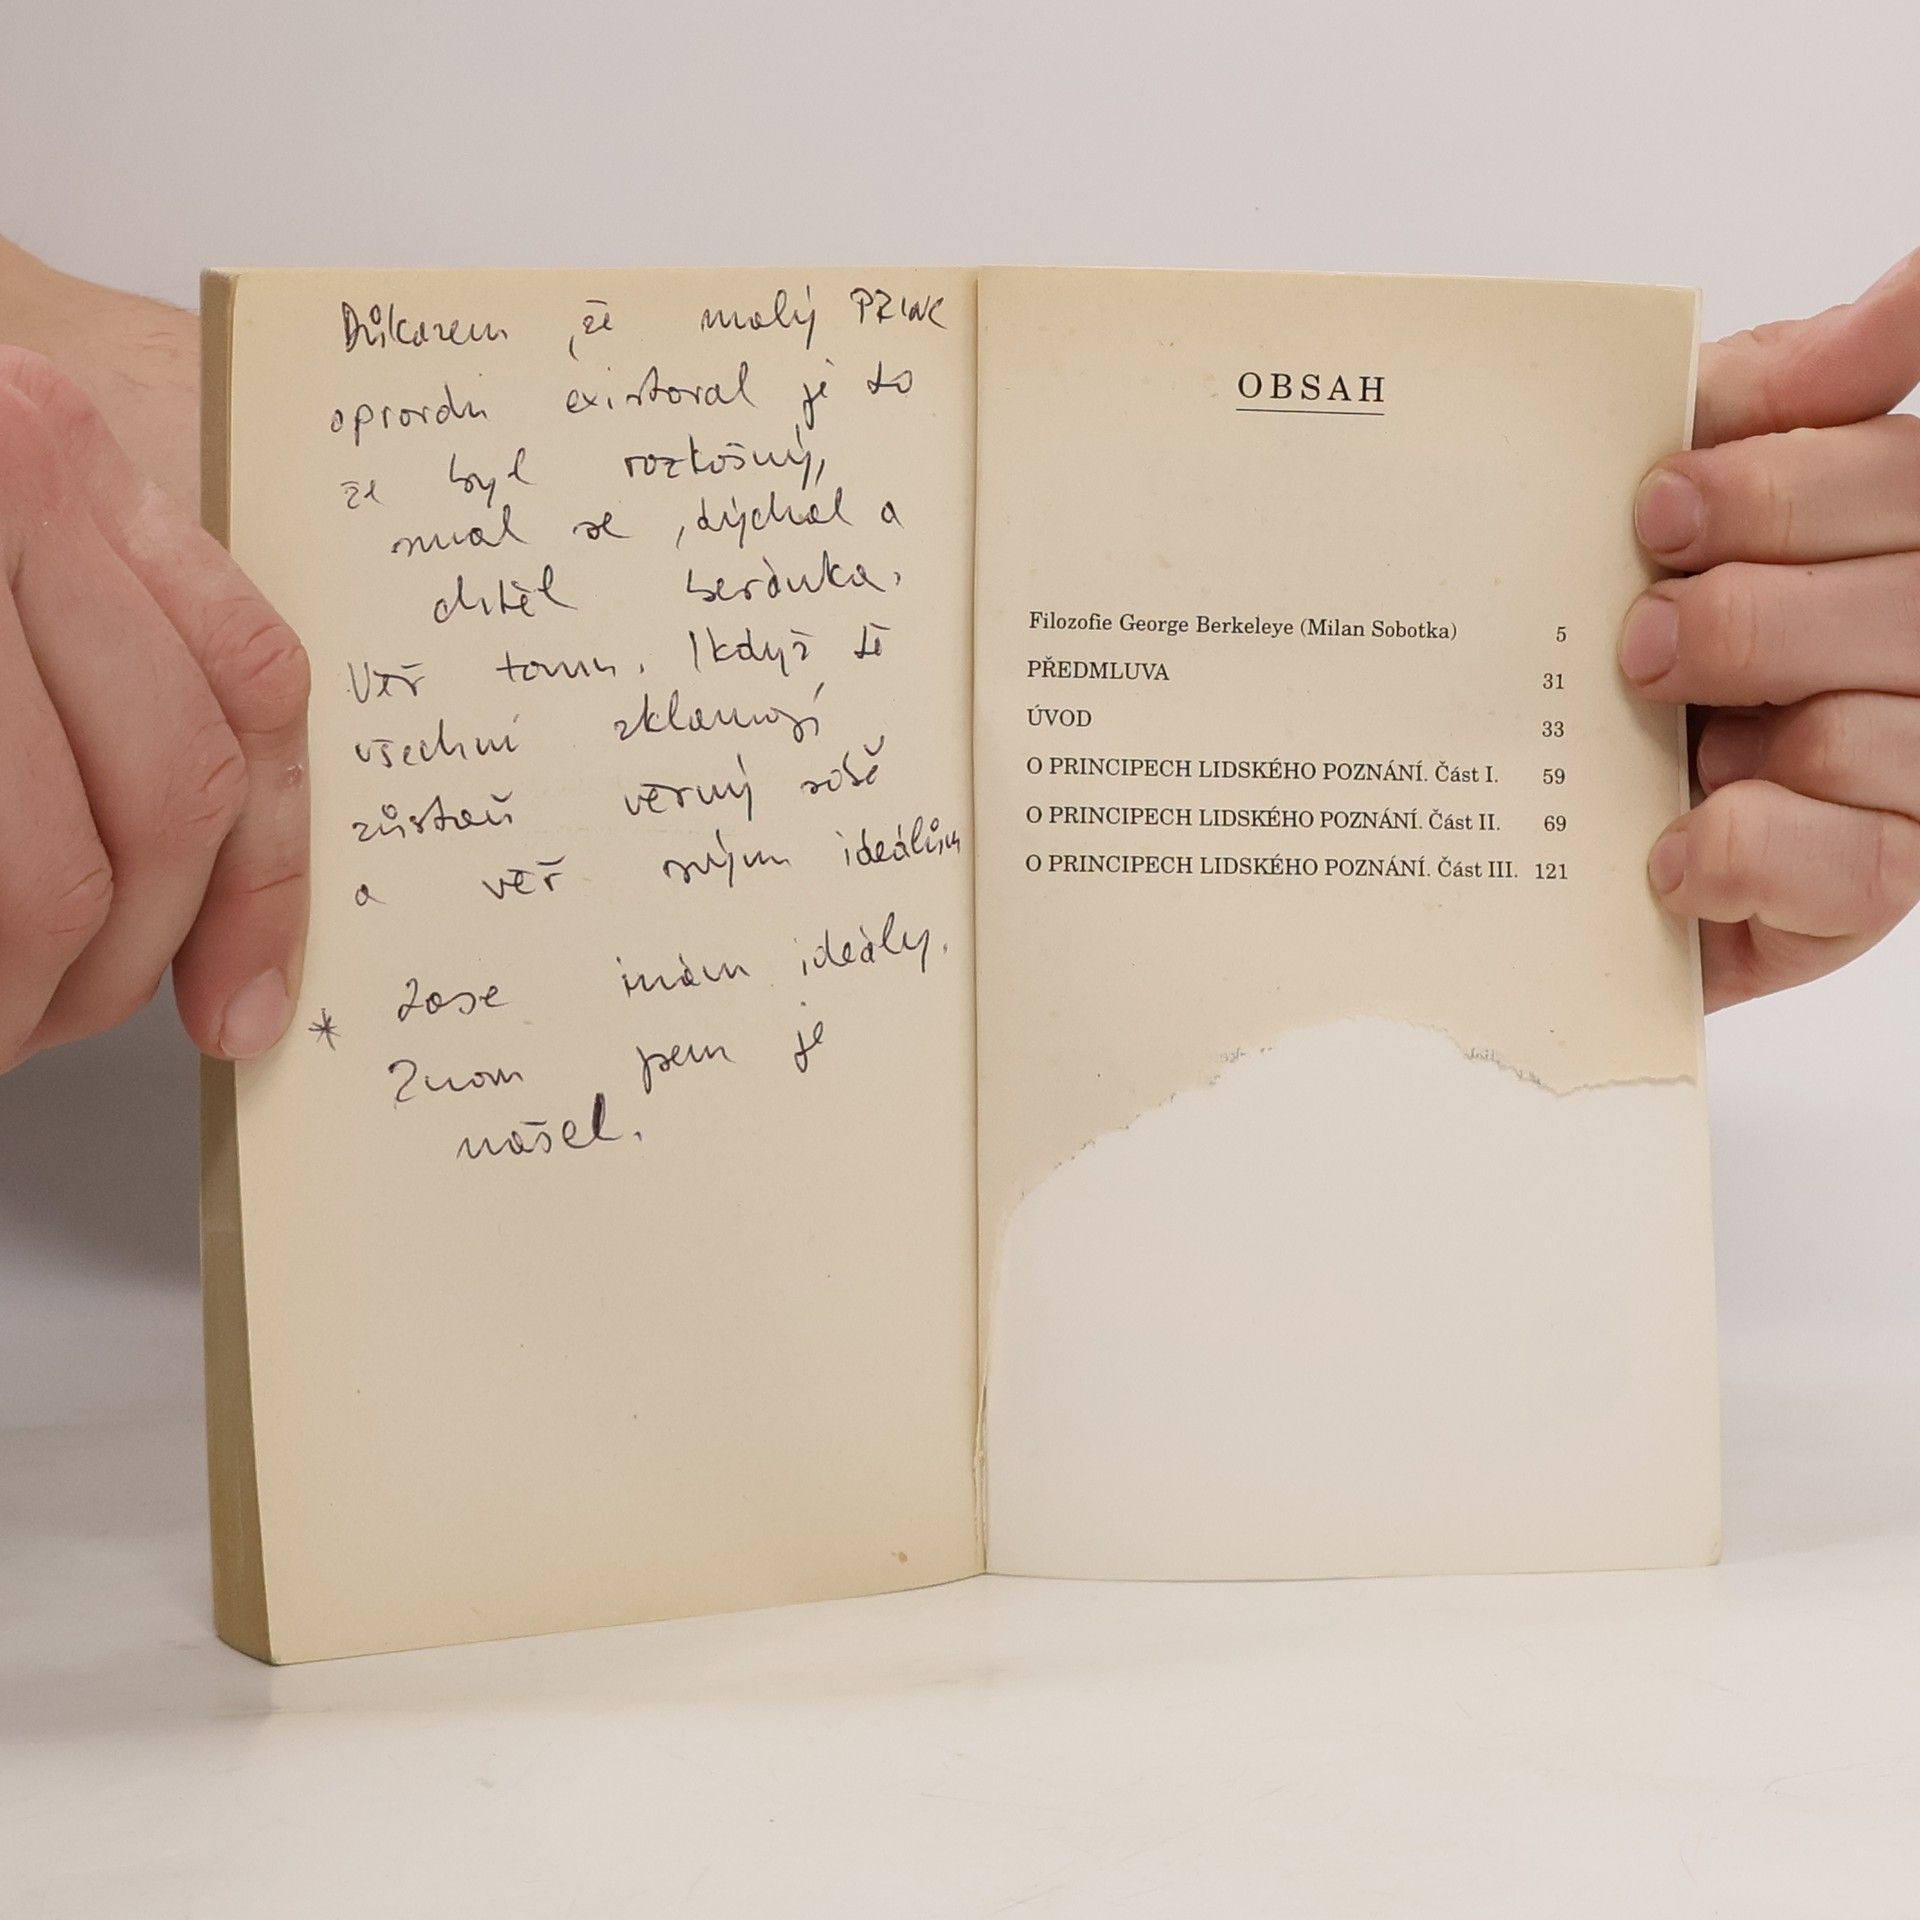 Důkazem, že malý PRINC
opravdu existoval je to
že byl rozkošný,
smál se, dýchal a
chtěl beránka.
Věř tomu. I když tě
všichni zklamají
zůstaň věrný sobě
a věř svým ideálům
Zase mám ideály.
* Znom jsem je
našel.
OBSAH
Filozofie George Berkeleye (Milan Sobotka) 5
PŘEDMLUVA 31
ÚVOD 33
O PRINCIPECH LIDSKÉHO POZNÁNÍ. Část I. 59
O PRINCIPECH LIDSKÉHO POZNÁNÍ. Část II. 69
O PRINCIPECH LIDSKÉHO POZNÁNÍ. Část III. 121